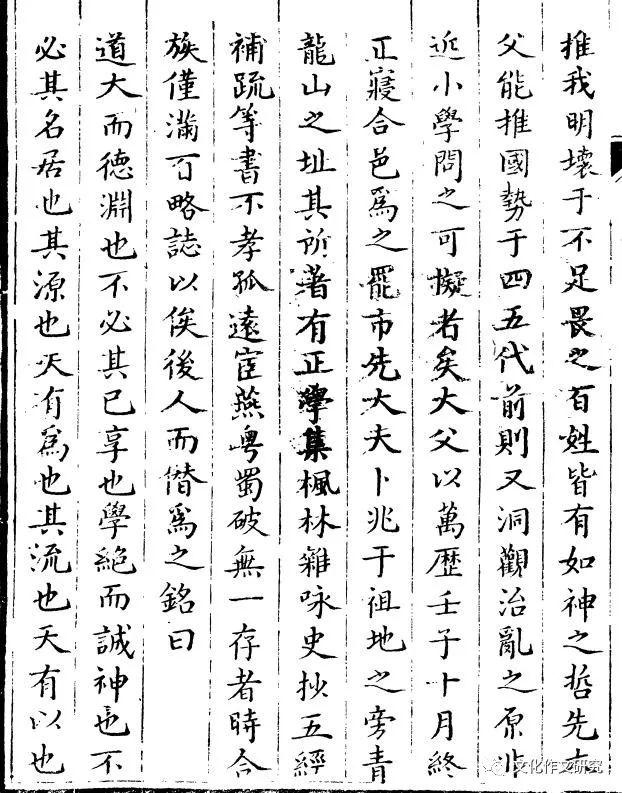 推我明壞于不足畏之百姓皆有如神之哲先大
父能推國勢于四五代前則又洞觀治亂之原非
近小學問之可擬者矣大父以萬歷壬子十月終
正寢合邑為之罷市先大夫卜兆于祖地之旁青
龍山之址其所著有正學集楓林雜咏史抄五經
補疏等書不孝孤遠宦燕粵蜀破無一存者時合
族僅滿百略誌以俟後人而僣爲之銘曰
道大而德淵也不必其已享也學絕而誠神也不
必其名居也其源也天有爲也其流也天有以也
文化作文研究